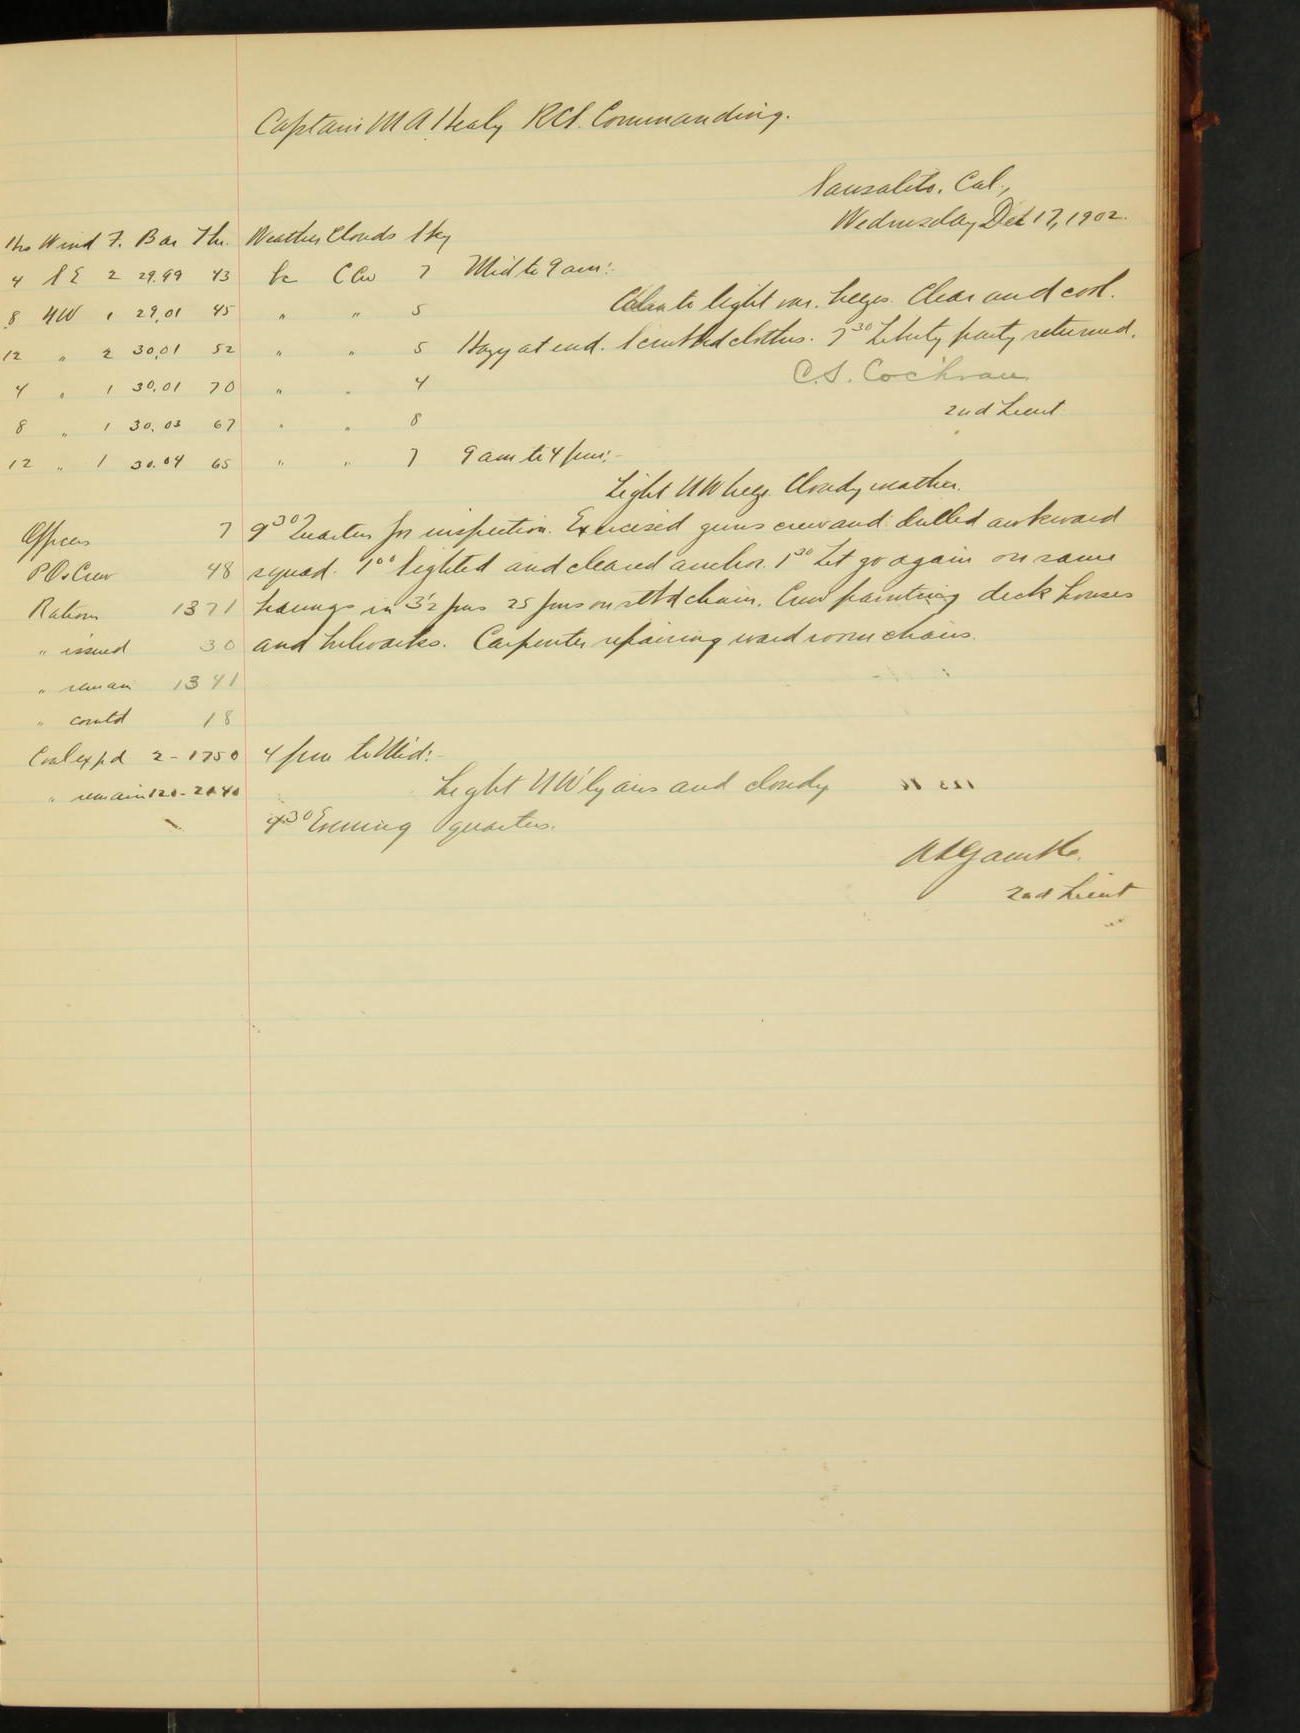 Captain M A Healy R.C.S. Commanding.
Sausalito. Cal.,
Wednesday Dec 17, 1902.
Hrs Wind F. Bar Thr. Weather Clouds Sky
4 SE 2 29.99 43 bc CCu 7 Mid to 9 am:
8 NW 1 29.01 45 " " 5 Calm to light var. brezes. Clear and cool.
12 " 2 30.01 52 " " 5 Hazy at end. Scrubbed clothes. 7 30 Liberty party returned.
4 " 1 30.01 70 " " 4 C.S. Cochran
8 " 1 30.03 67 " " 8 2nd Lieut
12 " 1 30.04 65 " " 7 9 am to 4 pm:-
Light NW breze. Cloudy weather.
Officers 7 9 30 Quarters for inspection. Exercised guns crew and drilled awkward
P.Os Crew 48 squad. 1 00 Sighted and cleared anchor. 1 30 Let go again on same
Rations 1371 bearings in 3½ fms 25 fms on stbd chain. Crew painting deck houses
" issued 30 and bulwarks. Carpenter repairing ward room chairs.
" remain 1341
" comtd 18
Coal expd 2-1750 4 pm to Mid:-
" remain 120-2040 Light NW'ly airs and cloudy
4 30 Evening quarters.
2nd Lieut